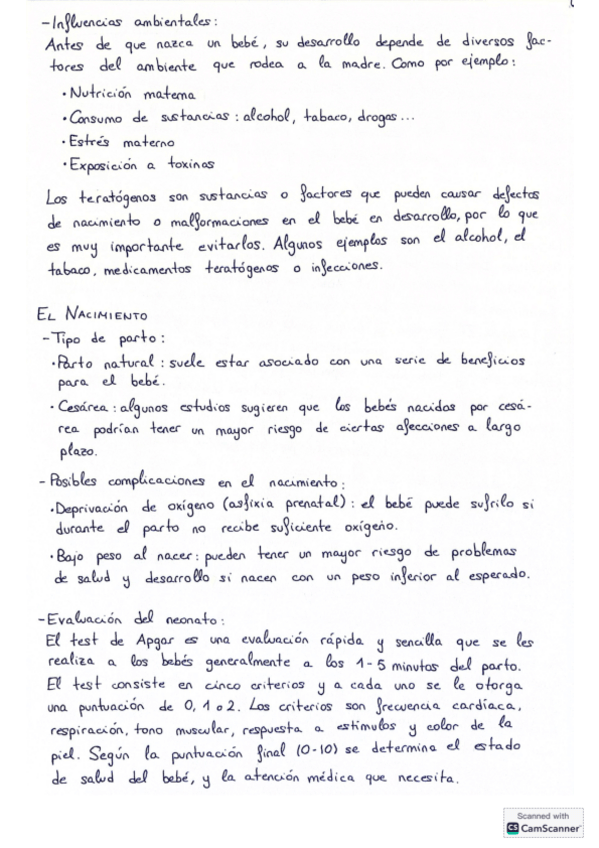 - Influencias ambientales:
Antes de que nazca un bebé, su desarrollo depende de diversos fac-
tores del ambiente que rodea a la madre. Como por ejemplo:
· Nutrición materna
· Consumo de sustancias: alcohol, tabaco, drogas...
· Estrés materno
· Exposición a toxinas
Los teratógenos son sustancias o factores que pueden causar defectos
de nacimiento o malformaciones en el bebé en desarrollo, por lo que
es muy importante evitarlos. Algunos ejemplos son el alcohol, el
tabaco, medicamentos teratógenos o infecciones.
EL NACIMIENTO
- Tipo de parto:
· Parto natural: suele estar asociado con una serie de beneficios
para el bebé.
· Cesárea: algunos estudios sugieren que los bebés nacidos por cesá-
rea podrían tener un mayor riesgo de ciertas afecciones a largo
plazo.
- Posibles complicaciones en el nacimiento:
· Deprivación de oxígeno (asfixia prenatal): el bebé puede sufrilo si
durante el parto no recibe suficiente oxígeno.
· Bajo peso al nacer: pueden tener un mayor riesgo de problemas
de salud y desarrollo si nacen con un peso inferior al esperado.
- Evaluación del neonato:
El test de Apgar es una evaluación rápida y sencilla que se les
realiza a los bebés generalmente a los 1-5 minutos del parto.
El test consiste en cinco criterios y a cada uno se le otorga
una puntuación de 0, 1 o 2. Los criterios son frecuencia cardíaca,
respiración, tono muscular, respuesta a estímulos y color de la
piel. Según la puntuación final (0-10) se determina el estado
de salud del bebé, y la atención médica que necesita.
Scanned with
CS CamScanner